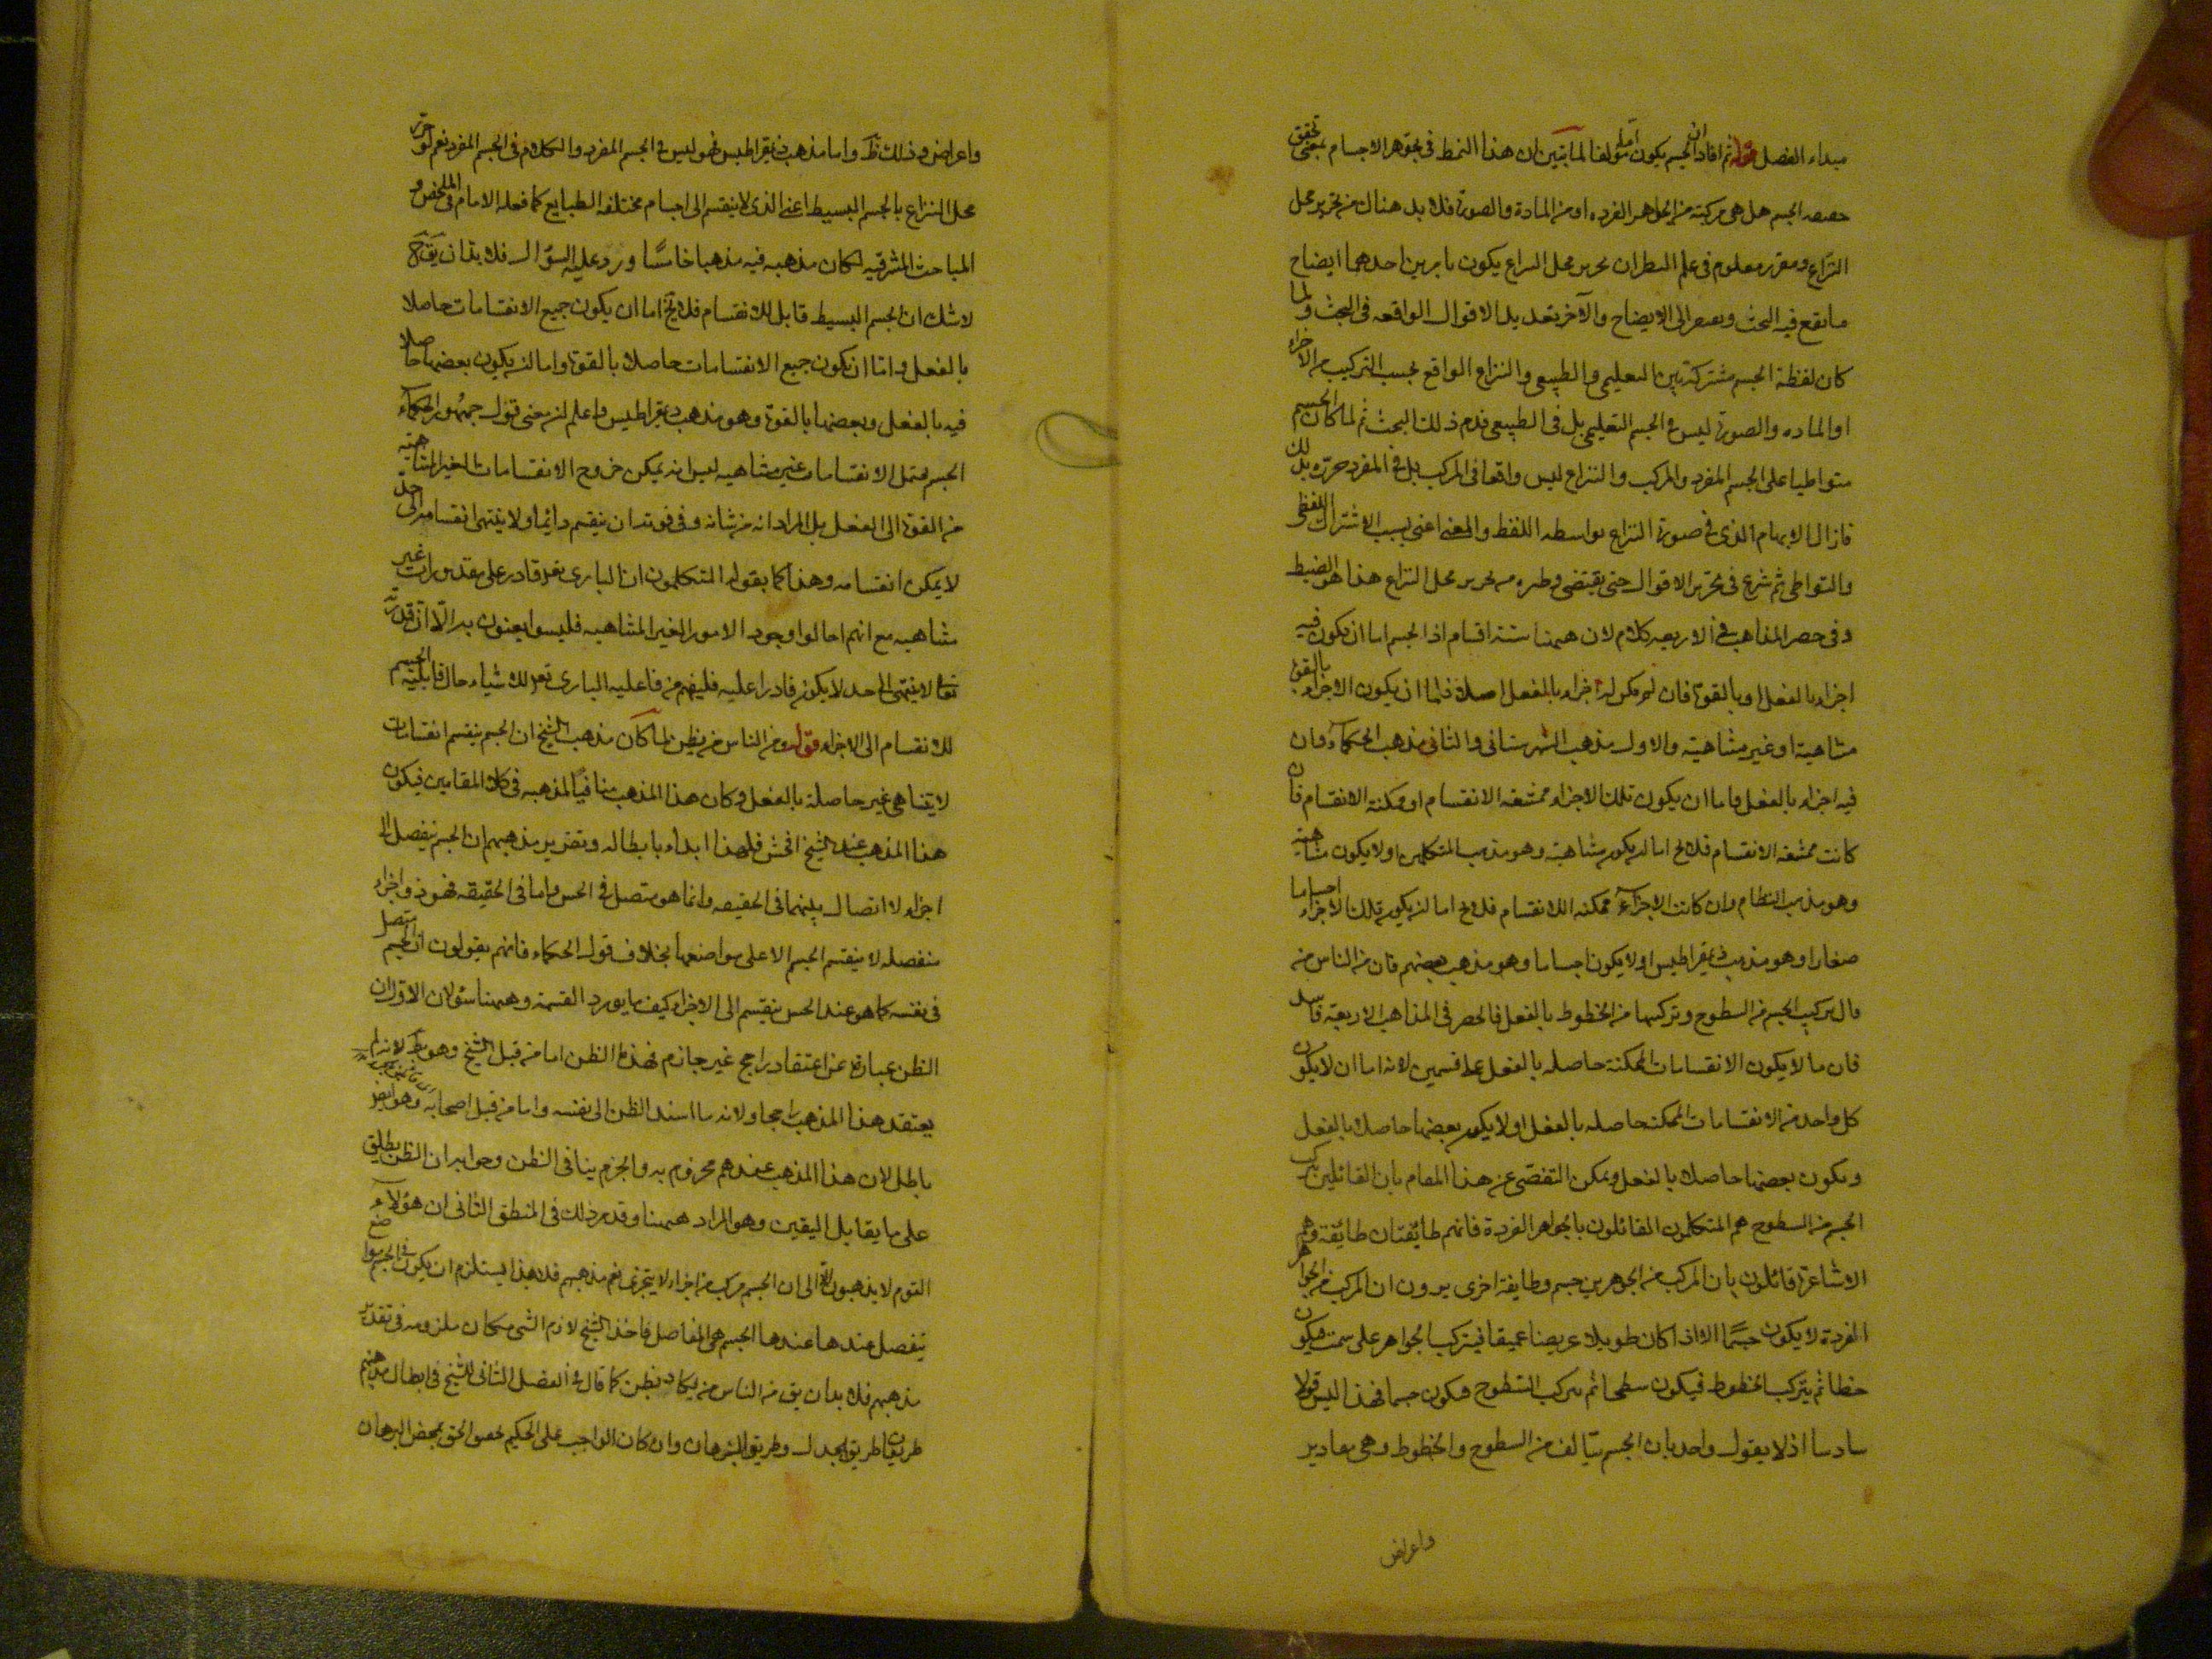 مبداء الفصل قوله ثم افاد ان الجسم يكون مؤلفا لما تبين ان هذا النمط فى تجوهر الاجسام بمعنى تحقق
حقيقه الجسم هل هى مركبة من الجواهر الفرده او من المادة والصورة فلا بد هناك من تحرير محل
النزاع ومقرر معلوم فى علم النظر ان تحرير محل النزاع يكون بامرين احدهما ايضاح
ما يقع فيه البحث ويفتقر الى الايضاح والآخر تعديل الاقوال الواقعه فى البحث ولما
كان لفظة الجسم مشتركة بين التعليمى والطبيعى والنزاع الواقع بحسب التركيب من الاجزاء
او الماده والصورة ليس فى الجسم التعليمى بل فى الطبيعى قدم ذلك البحث ثم لما كان الجسم
متواطيا على الجسم المفرد والمركب والنزاع ليس واقعا فى المركب بل فى المفرد حرره بذلك
فازال الابهام الذى فى صورة النزاع بواسطه اللفظ والمعنى اعنى بسبب الاشتراك اللفظى
والتواطى ثم شرع فى تحرير الاقوال حتى يقتضى وطره من تحرير محل النزاع هذا هو الضبط
وفى حصر المذاهب فى الاربعه كلام لان ههنا ستة اقسام اذ الجسم اما ان يكون فيه
اجزاء بالفعل او بالقوة فان لم يكن له اجزاء بالفعل اصلا فاما ان يكون الاجزاء بالقوة
متناهية او غير متناهية والاول مذهب الشهرستانى والثانى مذهب الحكماء وان
فيه اجزاء بالفعل فاما ان يكون تلك الاجزاء ممتنعه الانقسام او ممكنة الانقسام فان
كانت ممتنعه الانقسام فلا يخ اما ان يكون متناهية وهو مذهب المتكلمين او لا يكون متناهية
وهو مذهب النظام وان كانت الاجزاء ممكنه الانقسام فلا يخ اما ان يكون تلك الاجزاء اجساما
صغارا وهو مذهب ذيمقراطيس او لا يكون اجساما وهو مذهب بعضهم فان من الناس من
قال بتركيب الجسم من السطوح وتركبها من الخطوط بالفعل فالحصر فى المذاهب الاربعة فاسد
فان ما لا يكون الانقسامات الممكنة حاصله بالفعل على قسمين لانه اما ان لا يكون
كل واحد من الانقسامات الممكنه حاصله بالفعل او لا يكون بعضها حاصلا بالفعل
ويكون بعضها حاصلا بالفعل ويمكن التفصى عن هذا المقام بان القائلين بتركب
الجسم من السطوح هم المتكلمون القائلون بالجواهر الفردة فانهم طائفتان طائفة وهم
الاشاعرة قائلون بان المركب من الجوهرين جسم وطايفة اخرى يرون ان المركب من الجواهر
المفردة لا يكون جسما الا اذا كان طويلا عريضا عميقا فيتركب الجواهر على سمت فيكون
خطا ثم يتركب الخطوط فيكون سطحا ثم يتركب السطوح فيكون جسما فهذا ليس قولا
سادسا اذ لا يقول واحد بان الجسم يتألف من السطوح والخطوط وهى مقادير
واعراض
واعراض وذلك ظ واما مذهب ذيمقراطيس فهو ليس فى الجسم المفرد والكلام فى الجسم المفرد نعم لو حرر
محل النزاع بالجسم البسيط اعنى الذى لا ينقسم الى اجسام مختلفه الطبايع كما فعله الامام فى الملخص و
المباحث المشرقيه لكان مذهبه فيه مذهبا خامسا وورد عليه السؤال فلا بد ان يق ح
لا شك ان الجسم البسيط قابل للانقسام فلا يخ اما ان يكون جميع الانقسامات حاصلا
بالفعل واما ان يكون جميع الانقسامات حاصلا بالقوة واما ان يكون بعضها حاصلا
فيه بالفعل وبعضها بالقوة وهو مذهب ذيمقراطيس واعلم ان معنى قول جمهور الحكماء
الجسم محتمل الانقسامات غير متناهيه ليس انه يمكن خروج الانقسامات الغير المتناهية
من القوة الى الفعل بل المراد انه من شانه وفى قوته ان ينقسم دائما ولا ينتهى انقسامه الى حد
لا يمكن انقسامه وهذا كما يقوله المتكلمون ان البارى تع قادر على مقدورات غير
متناهيه مع انهم احالوا وجود الامور الغير المتناهيه فليسوا يعنون به الا ان قدرته
تعالى لا ينتهى الى حد لا يكون قادرا عليه فليفهم من فاعليه البارى تع للاشياء حال قابلية الجسم
للانقسام الى الاجزاء قوله ومن الناس من يظن لما كان مذهب الشيخ ان الجسم ينقسم انقسامات
لا يتناهى غير حاصلة بالفعل وكان هذا المذهب منافيا لمذهبه فى كلا المقامين فيكون
هذا المذهب عند الشيخ افحش فلهذا ابداء بابطاله وتقرير مذهبهم ان الجسم ينفصل الى
اجزاء لا اتصال بينها فى الحقيقه وانما هو متصل فى الحس واما فى الحقيقه فهو ذو اجزاء
منفصله لا ينقسم الجسم الا على مواضعها بخلاف قول الحكماء فانهم يقولون ان الجسم متصل
فى نفسه كما هو عند الحس ينقسم الى الاجزاء كيف ما يورد القسمة وههنا سؤلان الاول ان
الظن عبارة عن اعتقاد راجح غير جازم فهذا الظن اما من قبل الشيخ وهو بط لانه لم
يعتقد هذا المذهب راجحا ولانه ما اسند الظن الى نفسه واما من قبل اصحابه وهو ايضا
باطل لان هذا المذهب عندهم مجزوم به والجزم ينافى الظن وجوابه ان الظن يطلق
على ما يقابل اليقين وهو المراد ههنا وقد مر ذلك فى المنطق الثانى ان هؤلاء
القوم لا يذهبون الا الى ان الجسم مركب من اجزاء لا يتجزى نعم مذهبهم فلا هذا يستلزم ان يكون فى الجسم مواضع
ينفصل عندها عندها الجسم هى المفاصل فاخذ الشيخ لازم الشى مكان ملزومه فى تقدير
مذهبهم فلا بد ان يق من الناس من يكاد يظن كما قال فى الفصل الثانى للشيخ فى ابطال مذهبهم
طريقان طريق الجدل وطريق البرهان وان كان الواجب على الحكيم الحق بمحض البرهان